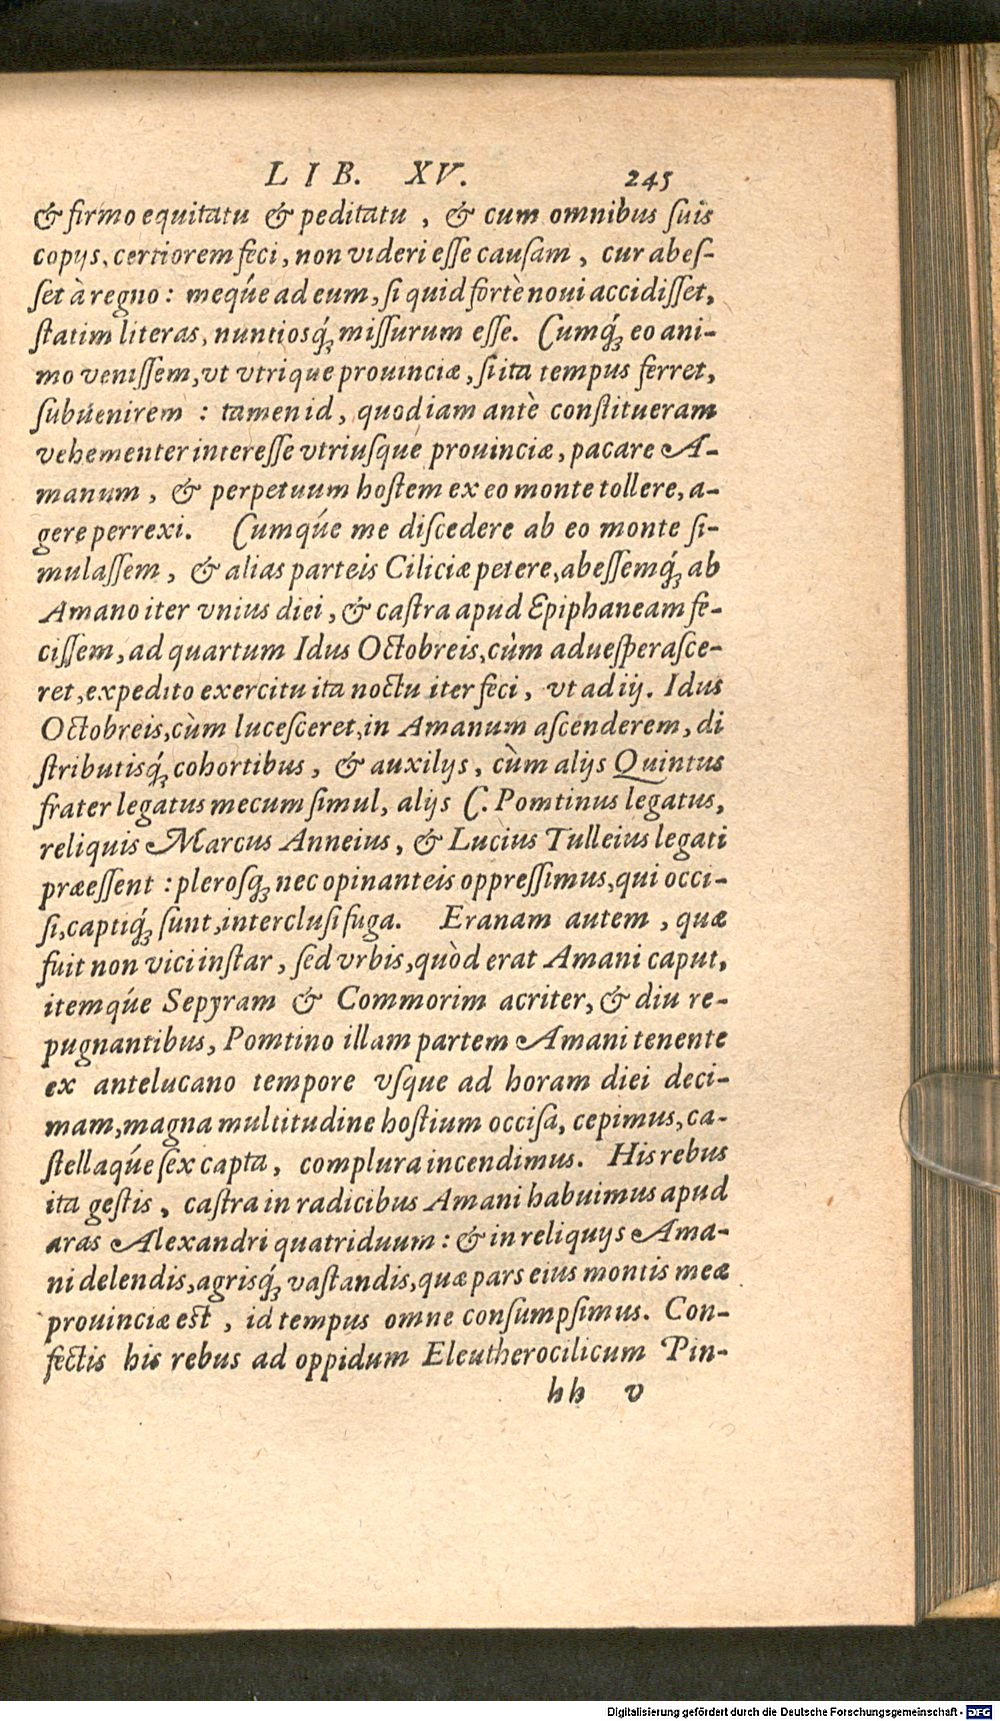 LIB. XV. 245
& firmo equitatu & peditatu, & cum omnibus ſuis
copijs, certiorem feci, non videri eſſe cauſam, cur abeſ-
ſet à regno: meq́ue ad eum, ſi quid fortè noui accidiſſet,
ſtatim literas, nuntiosq́ꝫ miſſurum eſſe. Cumq́ꝫ eo ani-
mo veniſſem, vt vtrique prouinciæ, ſi ita tempus ferret,
ſubuenirem : tamen id, quod iam antè conſtitueram
vehementer intereſſe vtriuſque prouinciæ, pacare A-
manum, & perpetuum hoſtem ex eo monte tollere, a-
gere perrexi. Cumq́ue me diſcedere ab eo monte ſi-
mulaſſem, & alias parteis Ciliciæ petere, abeſſemq́ꝫ ab
Amano iter vnius diei, & caſtra apud Epiphaneam fe-
ciſſem, ad quartum Idus Octobreis, cùm adueſperaſce-
ret, expedito exercitu ita noctu iter feci, vt ad iij. Idus
Octobreis, cùm luceſceret, in Amanum aſcenderem, di
ſtributisq́ꝫ cohortibus, & auxilijs, cùm alijs Quintus
frater legatus mecum ſimul, alijs C. Pomtinus legatus,
reliquis Marcus Anneius, & Lucius Tulleius legati
præeſſent : pleroſq́ꝫ nec opinanteis oppreſſimus, qui occi-
ſi, captiq́ꝫ ſunt, intercluſi fuga. Eranam autem, quæ
fuit non vici inſtar, ſed vrbis, quòd erat Amani caput,
itemq́ue Sepyram & Commorim acriter, & diu re-
pugnantibus, Pomtino illam partem Amani tenente
ex antelucano tempore vſque ad horam diei deci-
mam, magna multitudine hoſtium occiſa, cepimus, ca-
ſtellaq́ue ſex capta, complura incendimus. His rebus
ita geſtis, caſtra in radicibus Amani habuimus apud
aras Alexandri quatriduum : & in reliquijs Ama-
ni delendis, agrisq́ꝫ vaſtandis, quæ pars eius montis meæ
prouinciæ eſt, id tempus omne conſumpſimus. Con-
fectis his rebus ad oppidum Eleutherocilicum Pin-
hh v
Digitalisierung gefördert durch die Deutsche Forschungsgemeinschaft - DFG